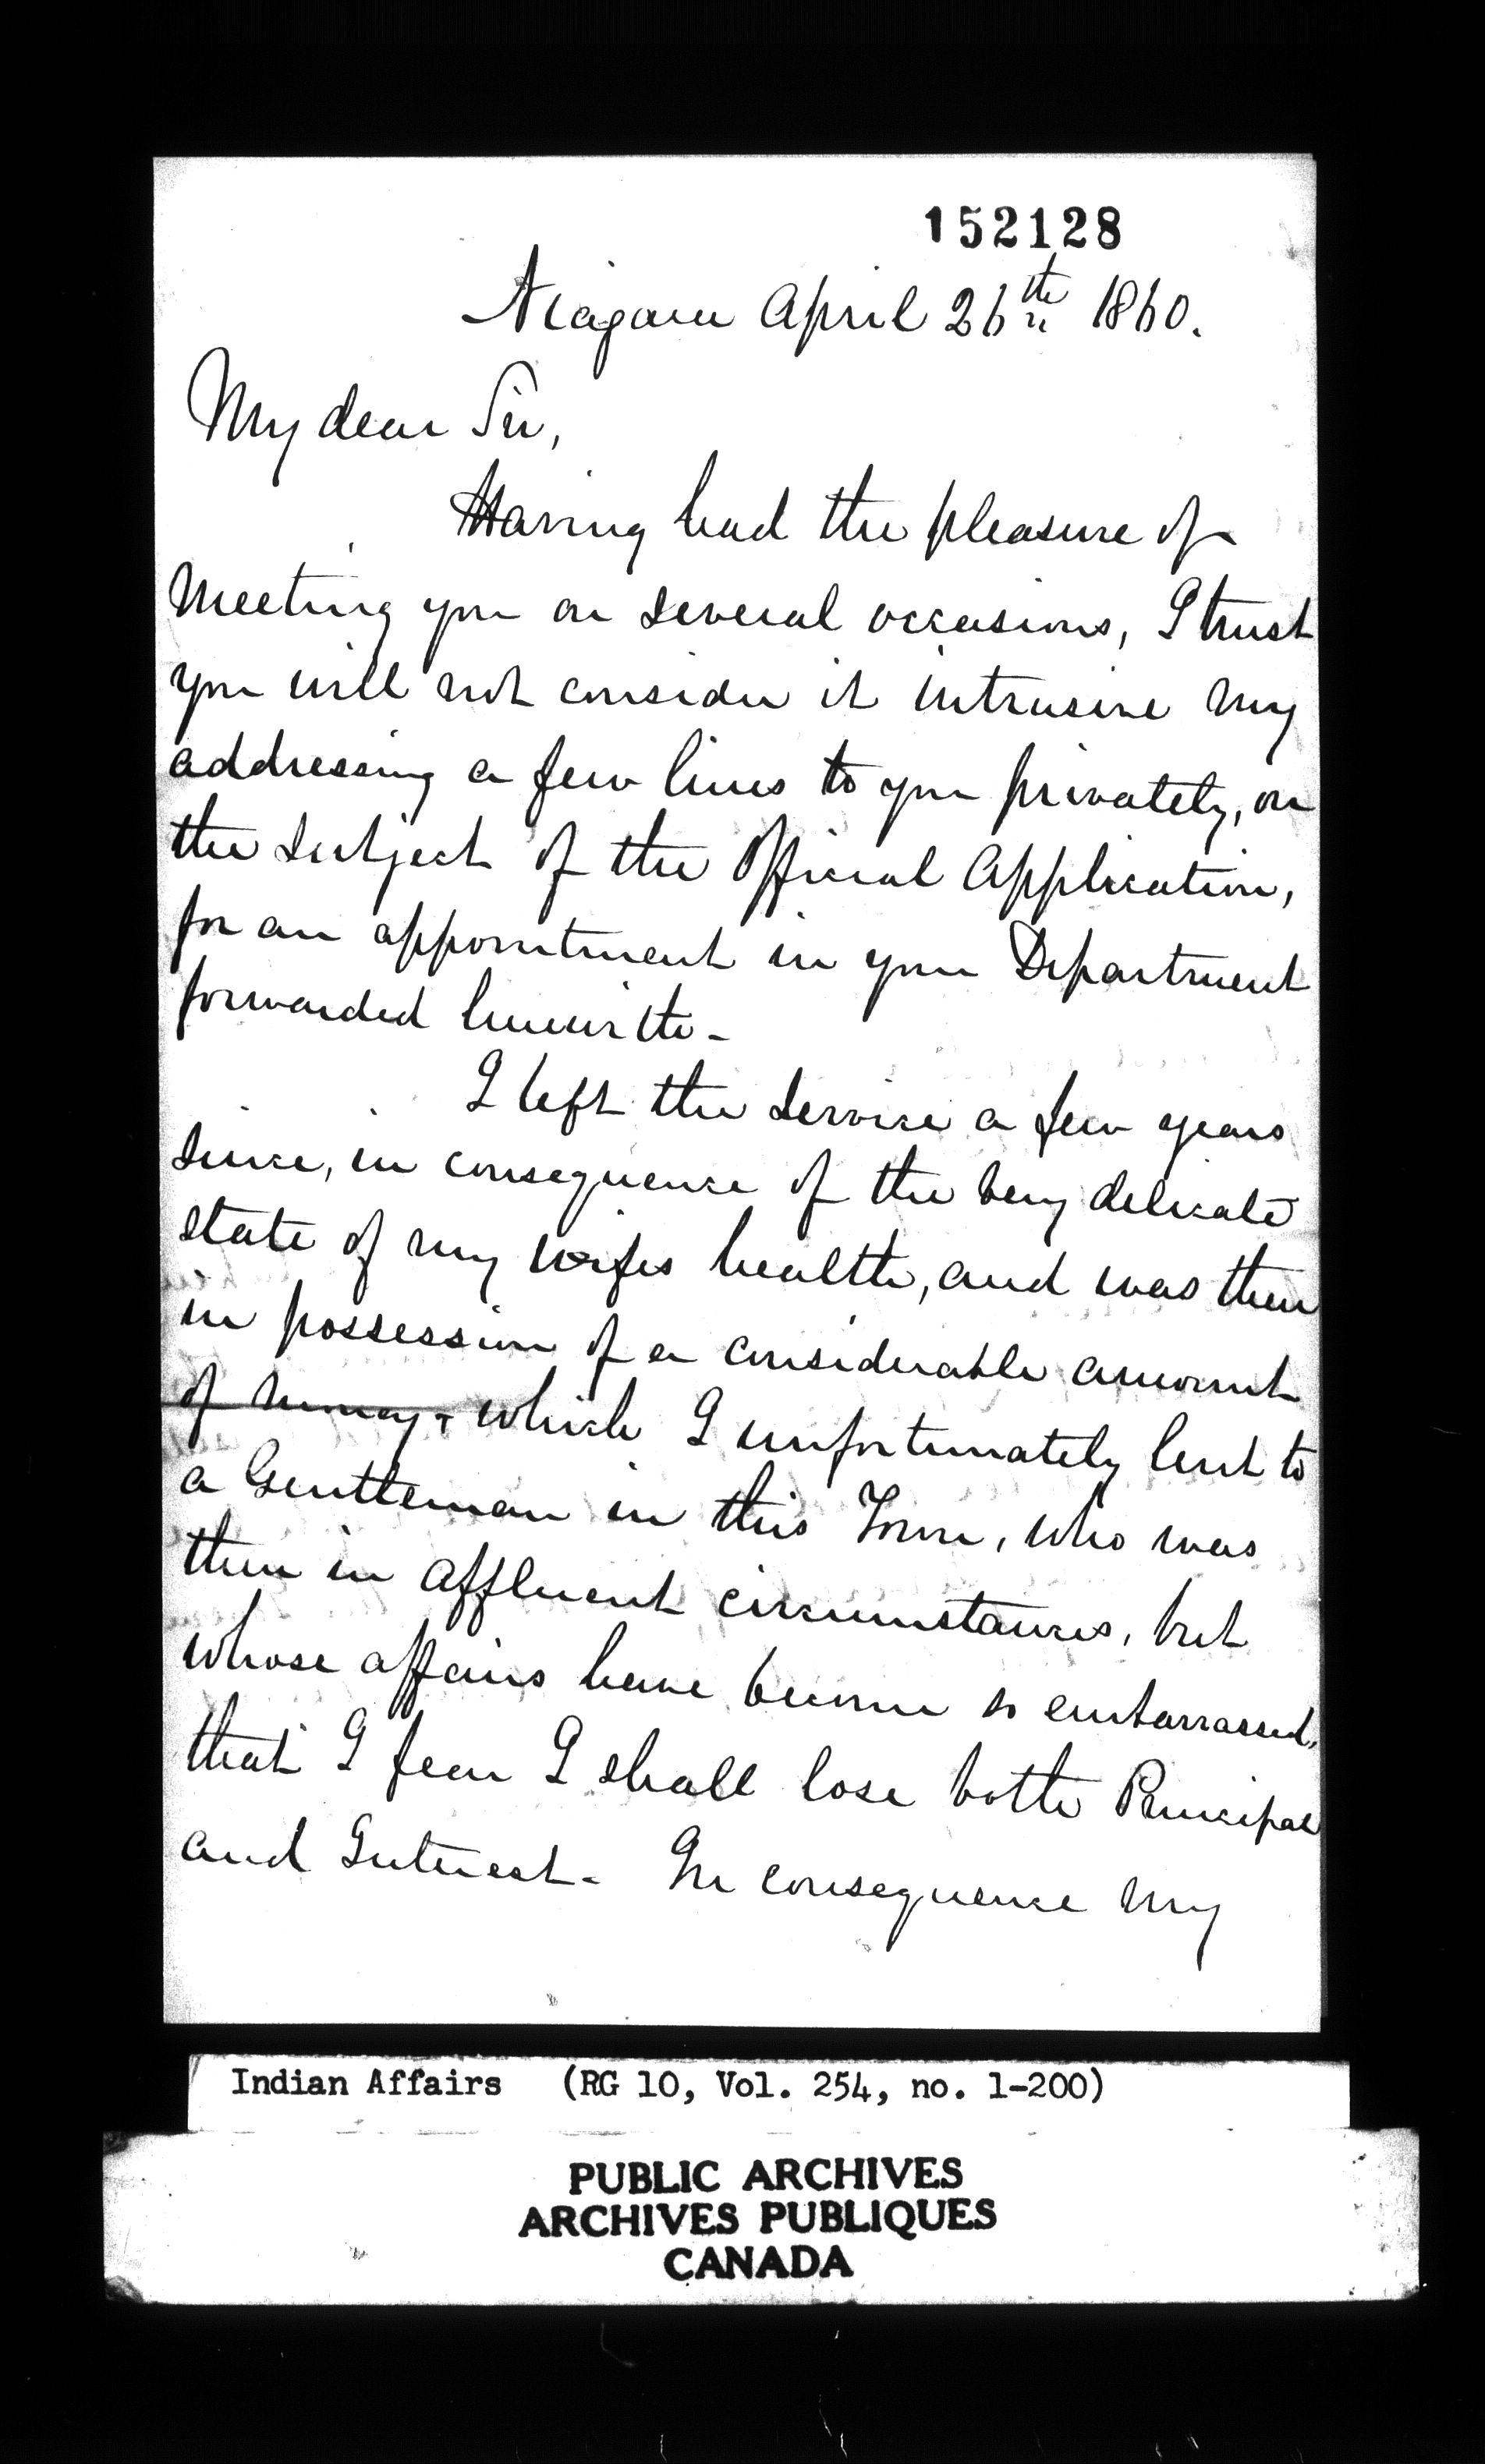 152128
Niagara April 26th 1860.
My dear Sir,
Having had the pleasure of
meeting you on several occasions, I trust
you will not consider it intrusive my
addressing a few lines to you privately, on
the subject of the Official Application,
for an appointment in your Department
forwarded herewith -
I left the Service a few years
since, in consequence of the very delicate
state of my wifes health, and was then
in possession of a considerable amount
of money - which I unfortunately lent to
a Gentleman in this Town, who was
then in affluent circumstances, but
whose affairs have become so embarrassed,
that I fear I shall lose both Principal
and Interest - In consequence my
Indian Affairs (RG 10, Vol. 254, no. 1-200)
PUBLIC ARCHIVES
ARCHIVES PUBLIQUES
CANADA